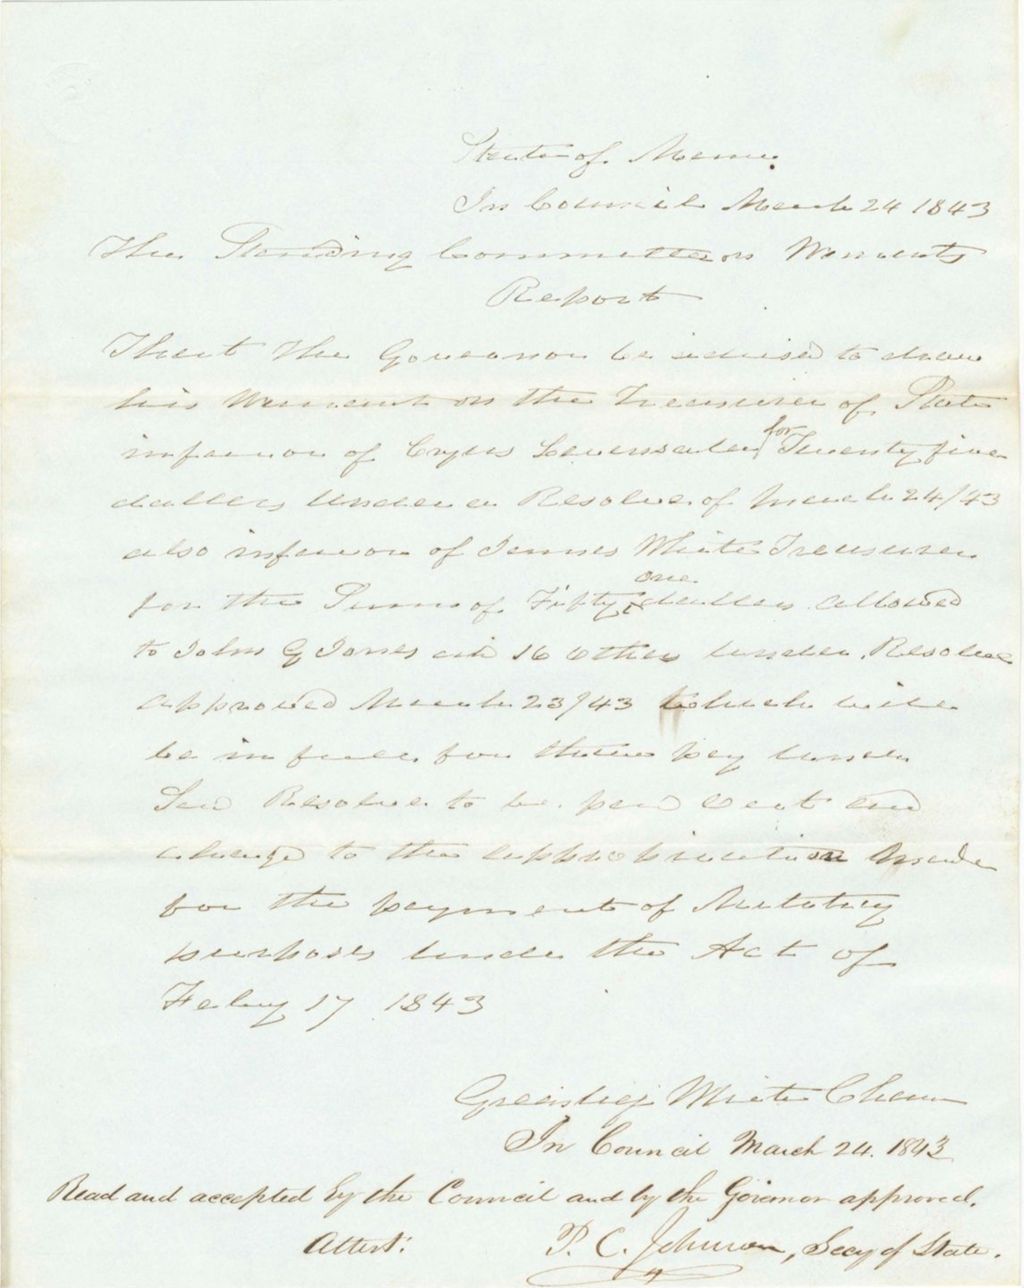 State of Maine.
In Council March 24 1843
The Standing Committee on Warrants
Report
That the Governor be advised to draw
his Warrant on the Treasurer of State
in favor of Cyrus Levensaler for Twenty five
dollars under a Resolve of March 24/43
also in favor of James White Treasurer
for the Sum of Fifty one dollars allowed
to John G Jones and 16 Others under Resolve
approved March 23/43 which will
be in full for their pay under
Resolve to be paid out and
charged to the appropriation made
for the payment of Military
purposes under the Act of
Feby 17 1843
White Chairm
In Council March 24. 1843
Read and accepted by the Council and by the Governor approved.
Attest:
P. C. Johnson, Secy of State.